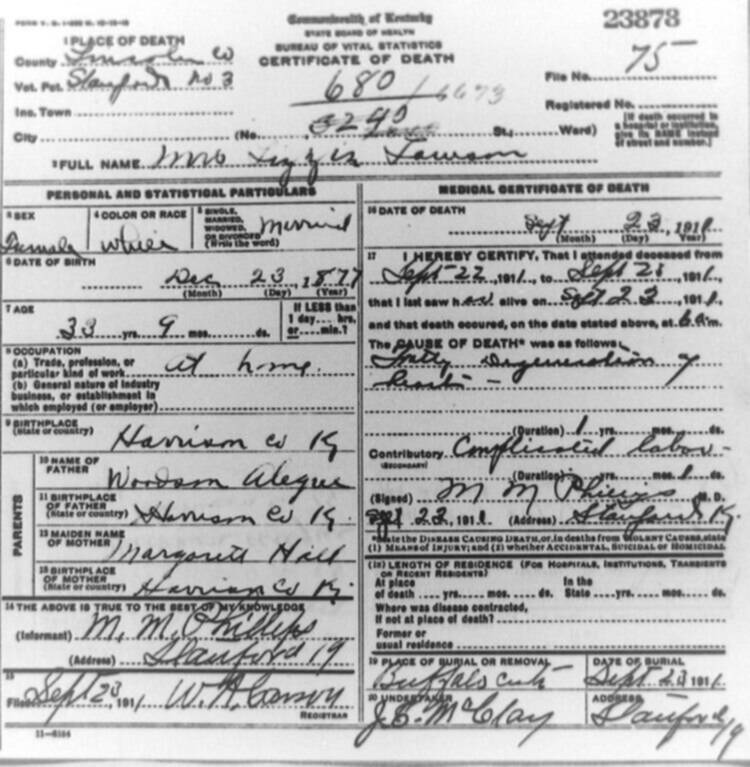 FORM V. S. 1-
Commonwealth of Kentucky
23878
STATE BOARD OF HEALTH
BUREAU OF VITAL STATISTICS
CERTIFICATE OF DEATH
1 PLACE OF DEATH
County Lincoln Co
Vot. Pct. Stanford No 3
Ins. Town
City (No. St.; Ward)
680
6673
3240
File No. 75
Registered No.
[If death occurred in a hospital or institution, give its NAME instead of street and number.]
2 FULL NAME Mrs Lizzie Lawson
PERSONAL AND STATISTICAL PARTICULARS
3 SEX
Female
4 COLOR OR RACE
White
5 SINGLE, MARRIED, WIDOWED, OR DIVORCED (Write the word)
Married
6 DATE OF BIRTH
Dec 23 1877
(Month) (Day) (Year)
7 AGE
33 yrs. 9 mos. ds.
If LESS than 1 day.... hrs. or.... min.?
8 OCCUPATION
(a) Trade, profession, or particular kind of work At home.
(b) General nature of industry business, or establishment in which employed (or employer)
9 BIRTHPLACE
(State or country)
Harrison Co Ky
PARENTS
10 NAME OF FATHER
Woodson
11 BIRTHPLACE OF FATHER (State or country)
Harrison Co Ky.
12 MAIDEN NAME OF MOTHER
Margarett Hall
13 BIRTHPLACE OF MOTHER (State or country)
Harrison Co Ky
14 THE ABOVE IS TRUE TO THE BEST OF MY KNOWLEDGE
(Informant) M. M. Phillips
(Address) Stanford Ky
15
Filed Sept 23, 1911 W. H.
REGISTRAR
11-6184
MEDICAL CERTIFICATE OF DEATH
16 DATE OF DEATH
Sept 23, 1911
(Month) (Day) (Year)
17 I HEREBY CERTIFY, That I attended deceased from
Sept 22 1911, to Sept 23 1911,
that I last saw her alive on Sept 23, 1911,
and that death occured, on the date stated above, at 6 a m.
The CAUSE OF DEATH* was as follows:
Fatty Degeneration of
heart -
(Duration) 1 yrs. mos. ds.
Contributory Complicated labor -
(SECONDARY)
(Duration) yrs. mos. 1 ds.
(Signed) M M Phillips M. D.
Sept 23, 1911 (Address) Stanford Ky.
*State the DISEASE CAUSING DEATH, or, in deaths from VIOLENT CAUSES, state
(1) MEANS OF INJURY; and (2) whether ACCIDENTAL, SUICIDAL or HOMICIDAL
(18) LENGTH OF RESIDENCE (FOR HOSPITALS, INSTITUTIONS, TRANSIENTS OR RECENT RESIDENTS)
At place of death yrs. mos. ds. In the State yrs. mos. ds.
Where was disease contracted,
If not at place of death?
Former or
usual residence
19 PLACE OF BURIAL OR REMOVAL
Buffalo
DATE OF BURIAL
Sept 23 1911
20 UNDERTAKER
McClay
ADDRESS
Stanford Ky